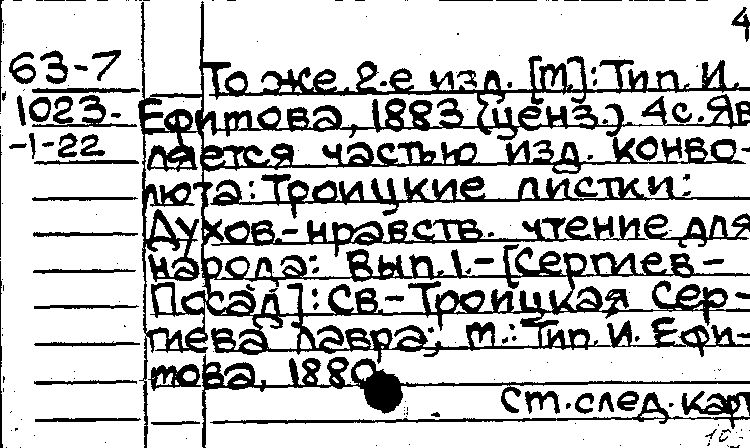 4
63-7 То же. 2-е изд. [М.]: Тип. И.
1023- Ефимова, 1883 (ценз.). 4с. Яв
-1-22 ляется частью изд. конво-
люта: Троицкие листки:
Духов.-нравств. чтение для
народа: Вып. 1.- [Сергиев-
Посад]: Св.-Троицкая Сер-
гиева лавра; М.: Тип. И. Ефи-
мова, 1880
См. след. карт